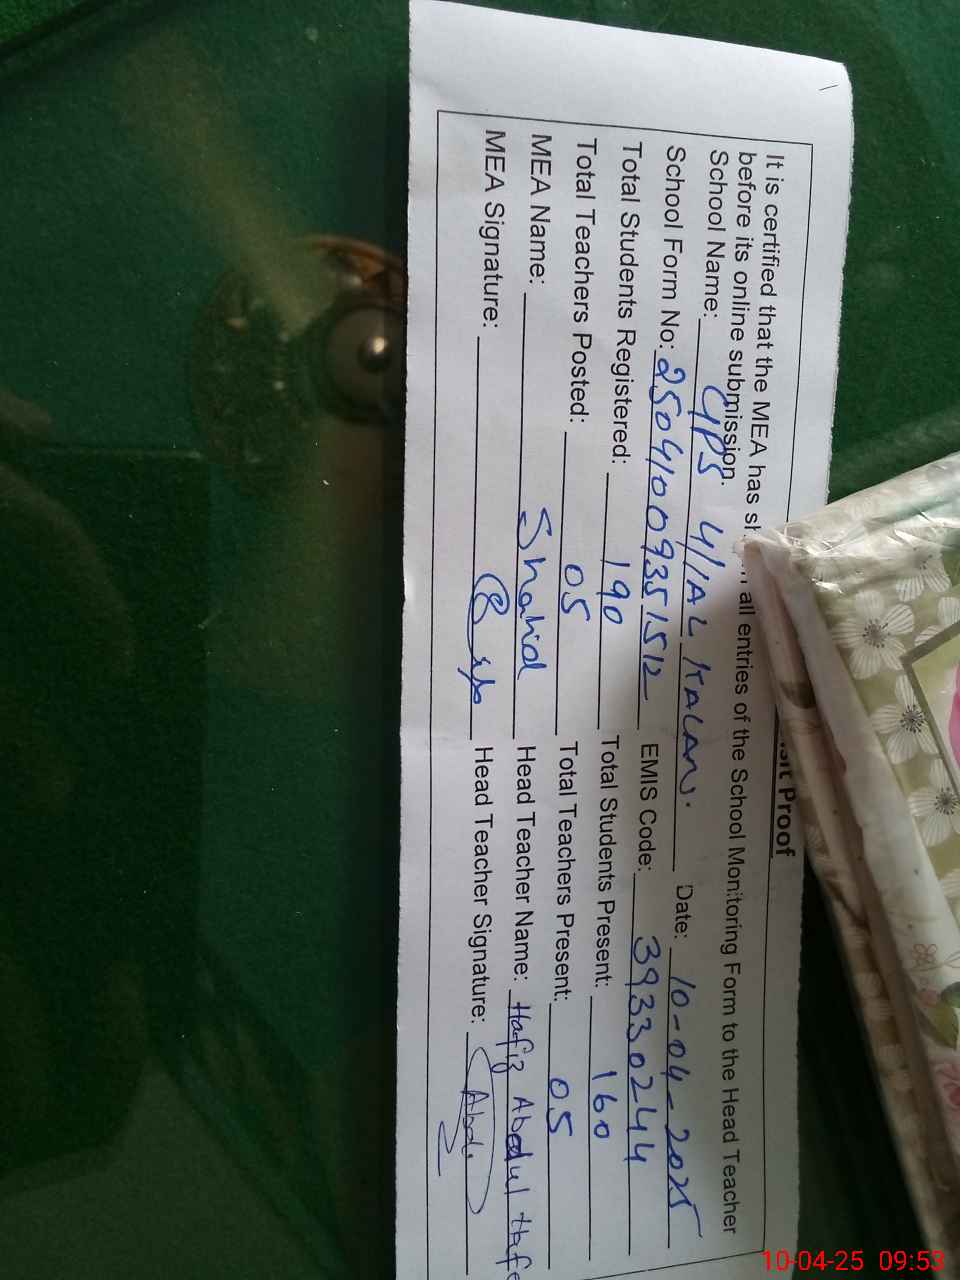 sit Proof
It is certified that the MEA has sh all entries of the School Monitoring Form to the Head Teacher
before its online submission.
School Name: GPS 4/1AL KALAN. Date: 10-04-2025
School Form No: 25041009351512 EMIS Code: 39330244
Total Students Registered: 190 Total Students Present: 160
Total Teachers Posted: 05 Total Teachers Present: 05
MEA Name: Shahid Head Teacher Name: Hafiz Abdul Hafe
MEA Signature: Head Teacher Signature: Abdu
10-04-25 09:53